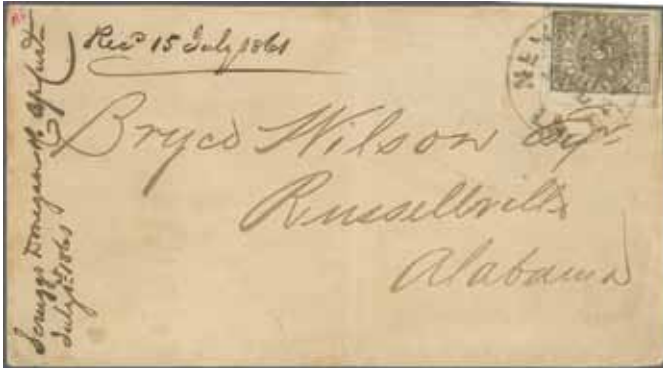 Recd 15 July 1861
Bryce Wilson Esqr
Russellville
Alabama
Scruggs Donegan &
July 1861
NEW